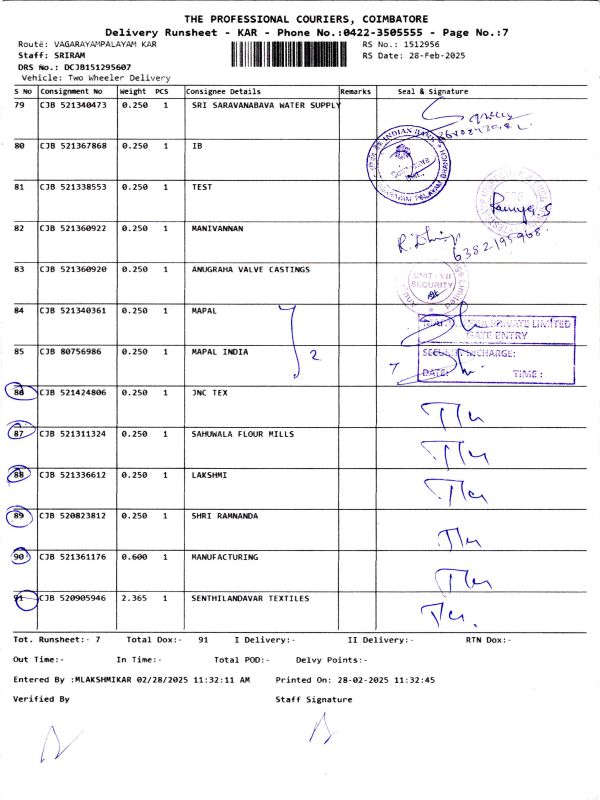 THE PROFESSIONAL COURIERS, COIMBATORE
Delivery Runsheet - KAR - Phone No.:0422-3505555 - Page No.:7
Route: VAGARAYAMPALAYAM KAR
RS No.: 1512956
Staff: SRIRAM
RS Date: 28-Feb-2025
DRS No.: DCJB151295607
Vehicle: Two Wheeler Delivery
S No Consignment No Weight PCS Consignee Details Remarks Seal & Signature
79 CJB 521340473 0.250 1 SRI SARAVANABAVA WATER SUPPLY
80 CJB 521367868 0.250 1 IB
INDIAN BANK
81 CJB 521338553 0.250 1 TEST
Ramya.S
82 CJB 521360922 0.250 1 MANIVANNAN
6382195968
83 CJB 521360920 0.250 1 ANUGRAHA VALVE CASTINGS
UNIT - VII
SECURITY
84 CJB 521340361 0.250 1 MAPAL
PRIVATE LIMITED
GATE ENTRY
85 CJB 80756986 0.250 1 MAPAL INDIA 2
SECURITY INCHARGE:
DATE: TIME :
86 CJB 521424806 0.250 1 JNC TEX
87 CJB 521311324 0.250 1 SAHUWALA FLOUR MILLS
88 CJB 521336612 0.250 1 LAKSHMI
89 CJB 520823812 0.250 1 SHRI RAMNANDA
90 CJB 521361176 0.600 1 MANUFACTURING
91 CJB 520905946 2.365 1 SENTHILANDAVAR TEXTILES
Tot. Runsheet:- 7 Total Dox:- 91 I Delivery:- II Delivery:- RTN Dox:-
Out Time:- In Time:- Total POD:- Delvy Points:-
Entered By :MLAKSHMIKAR 02/28/2025 11:32:11 AM Printed On: 28-02-2025 11:32:45
Verified By Staff Signature